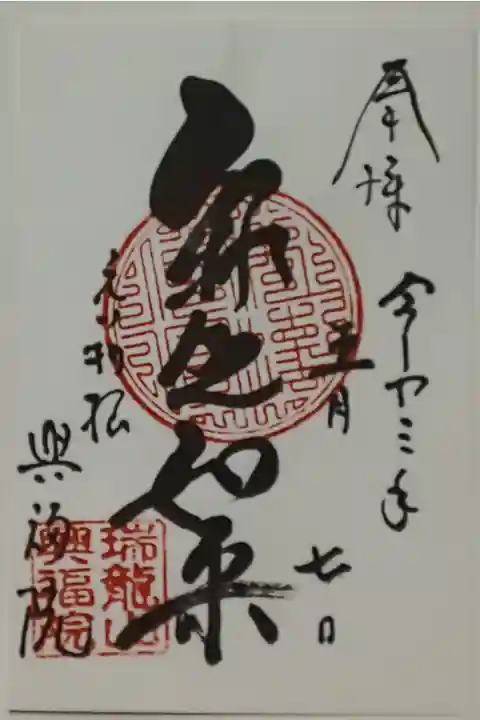 奉拝 令和三年
五月 七日
釈迦如来
興福院
瑞龍山
興福院